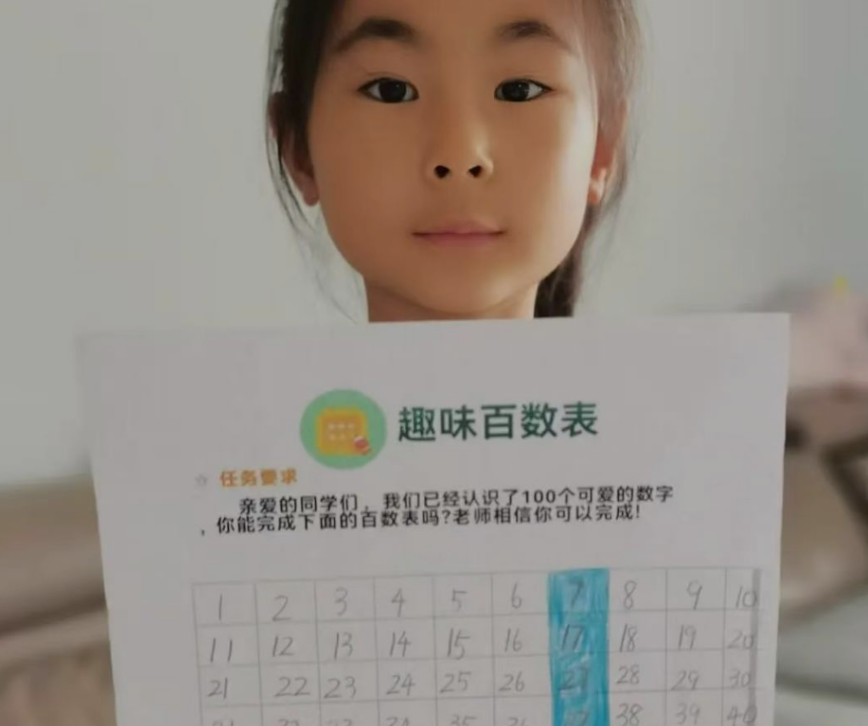 趣味百数表
任务要求
亲爱的同学们，我们已经认识了100个可爱的数字
，你能完成下面的百数表吗?老师相信你可以完成!
1 2 3 4 5 6 7 8 9 10
11 12 13 14 15 16 17 18 19 20
21 22 23 24 25 26 27 28 29 30
35 38 39 40